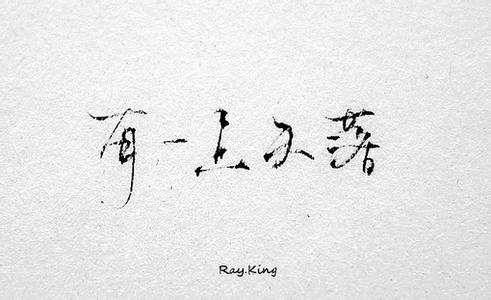 有一上落
Ray.King